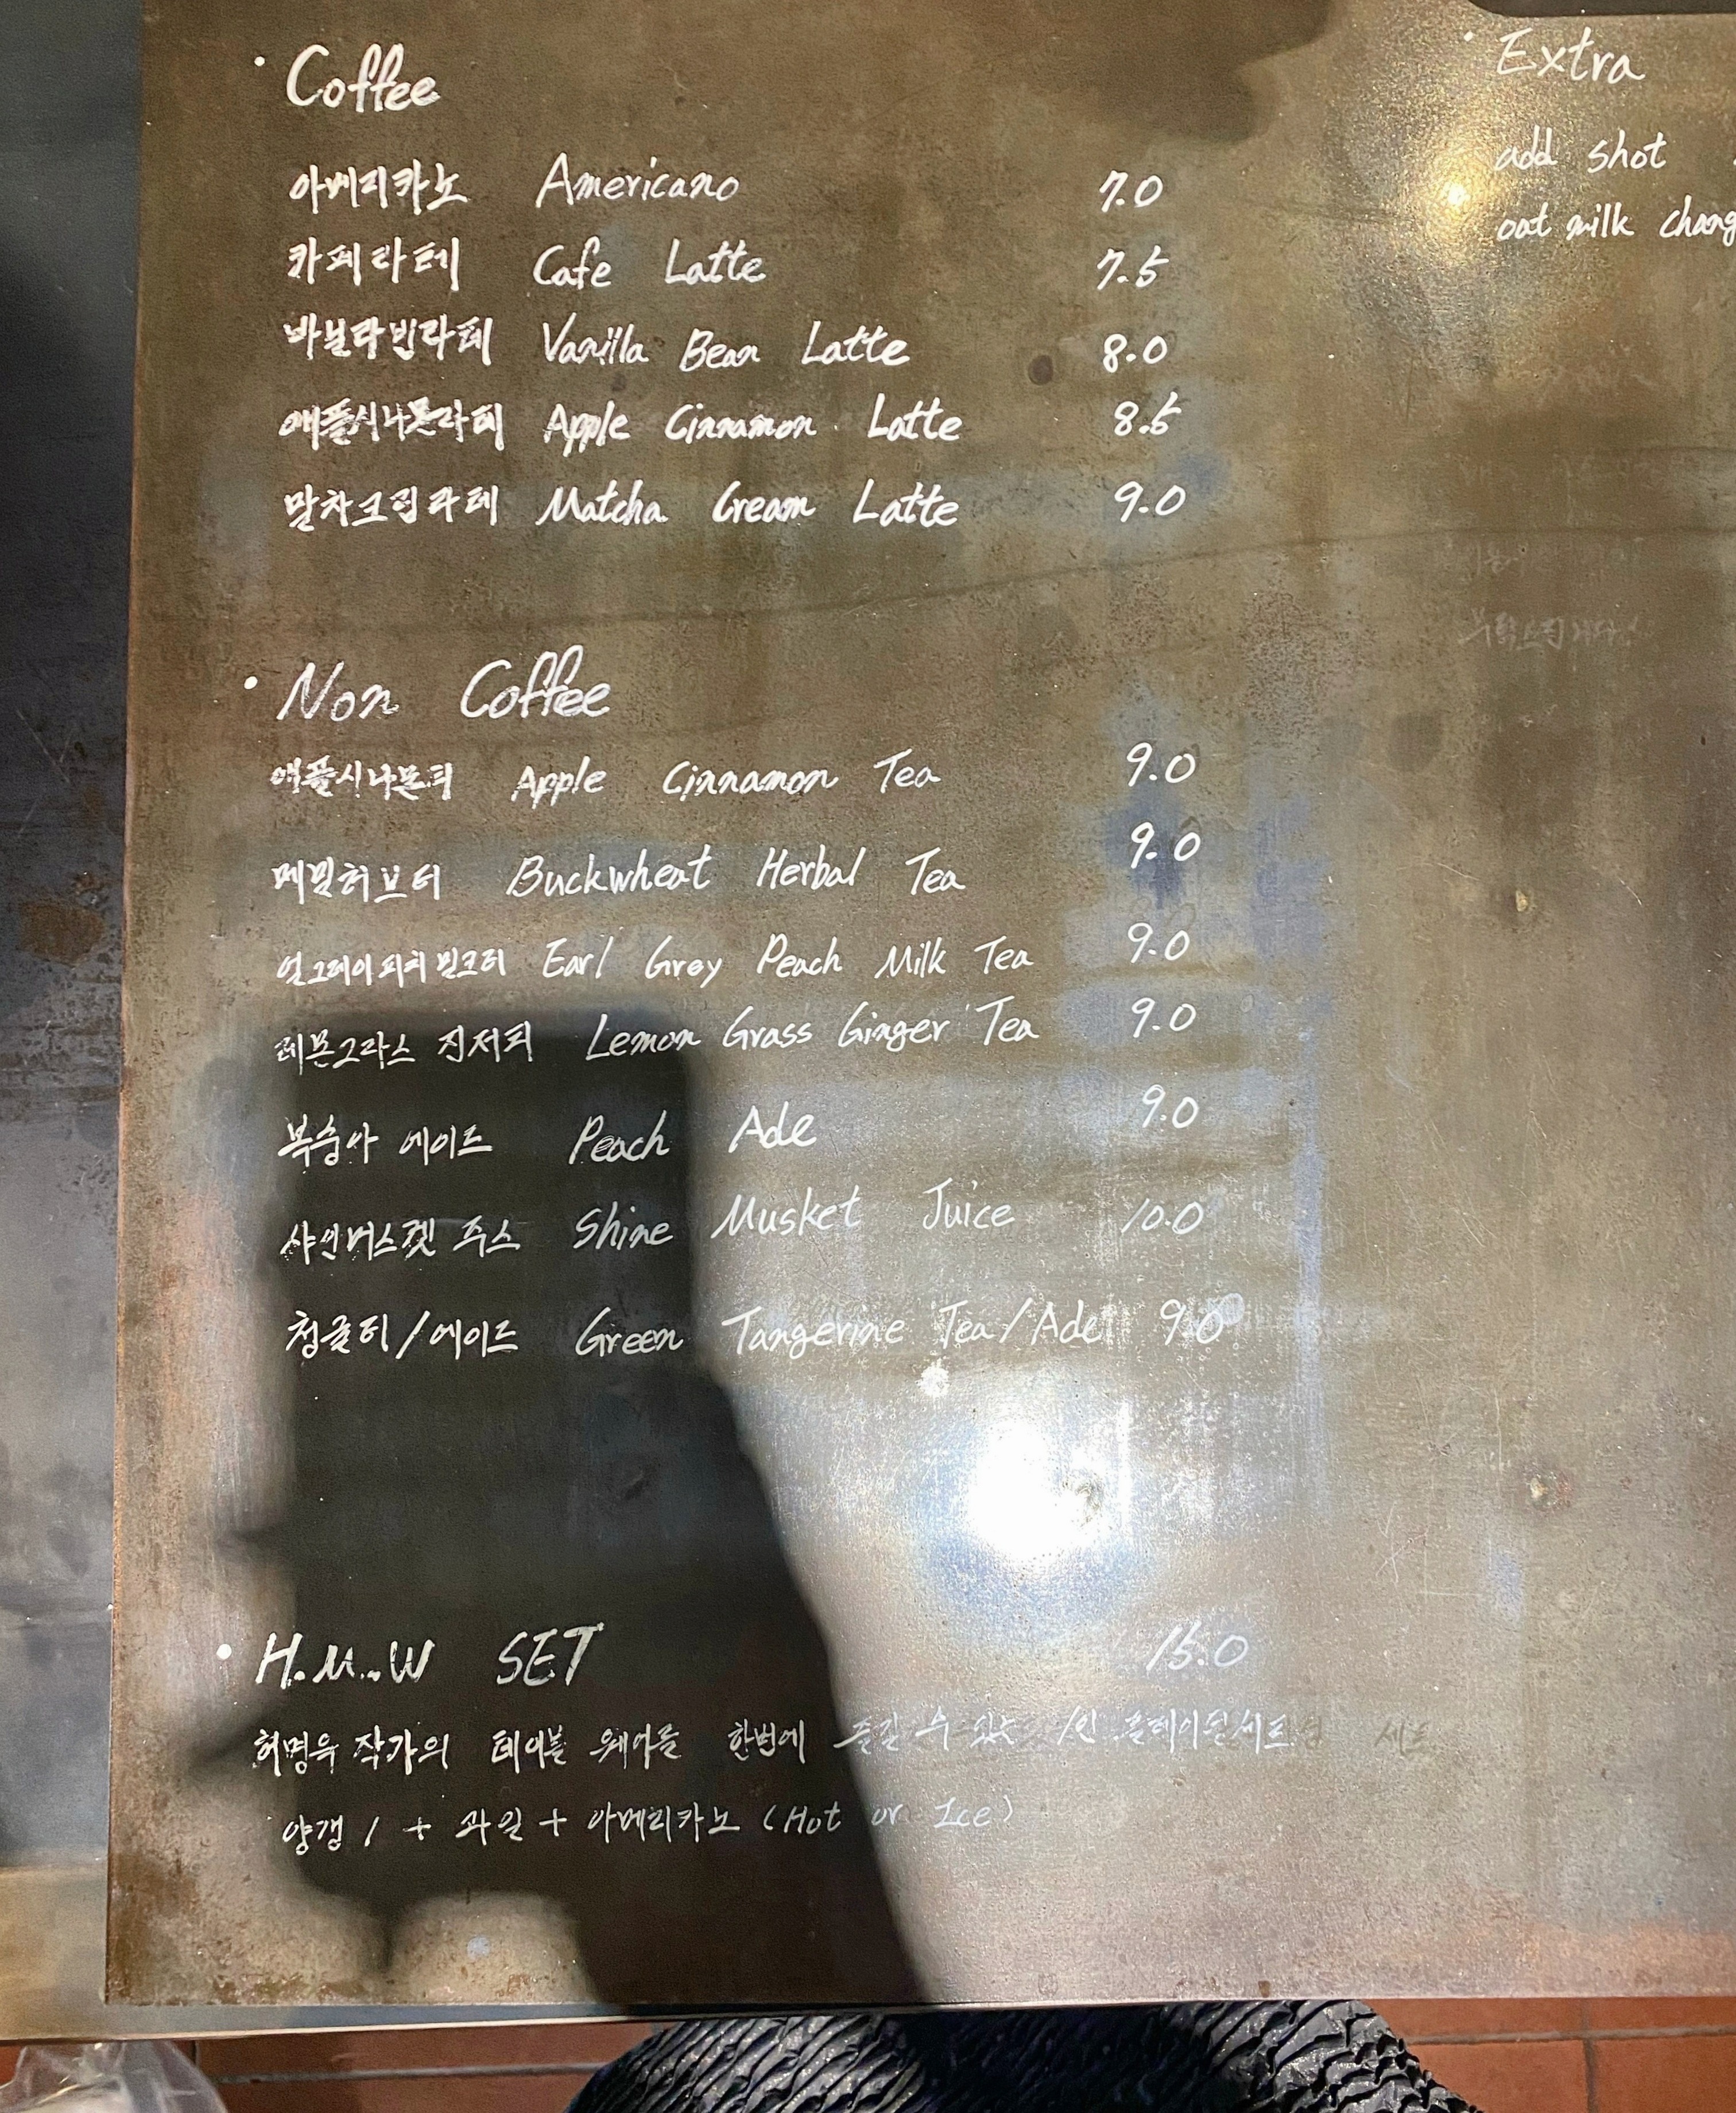 · Coffee
아메리카노 Americano 7.0
카페라테 Cafe Latte 7.5
바닐라빈라떼 Vanilla Bean Latte 8.0
애플시나몬라떼 Apple Cinnamon Latte 8.5
말차크림라떼 Matcha Cream Latte 9.0
· Non Coffee
애플시나몬티 Apple Cinnamon Tea 9.0
메밀허브티 Buckwheat Herbal Tea 9.0
얼그레이피치밀크티 Earl Grey Peach Milk Tea 9.0
레몬그라스 진저티 Lemon Grass Ginger Tea 9.0
복숭아 에이드 Peach Ade 9.0
샤인머스켓 주스 Shine Musket Juice 10.0
청귤티/에이드 Green Tangerine Tea/Ade 9.0
· H.M..W SET 15.0
허명욱 작가의 테이블 웨어를 한번에 즐길 수 있는 1인 플레이팅세트
양갱 1 + 과일 + 아메리카노 (Hot or Ice)
· Extra
add shot
oat milk chang